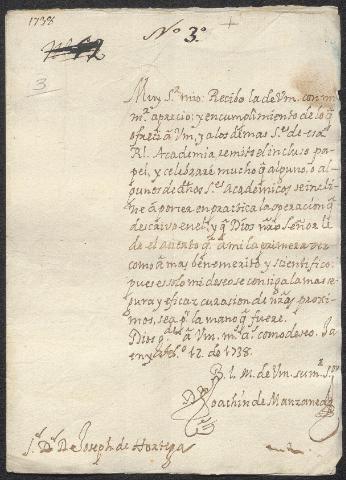 1738
Nº 3º
3
Muy Sr. mio: Recibo la de Vm. con mi
mr. aprecio; y en cumplimiento de lo q
ofreci à Vm, y a los demas Ses. de esa
Rl. Academia remito el incluso pa-
pel, y celebrarè mucho q alguno, ò al-
gunos de dhos Ses. Academicos se incli-
ne à poner en practica la operacion q
descrivo en el; y q Dios nro Señor le
de el acierto q à mi la primera vez
como à mas benemerito y scientifico:
pues es solo mi deseo se consiga la mas se-
gura y eficaz curasion de nros proxi-
mos, sea pr. la mano q fuere.
Dios gue. à Vm. ms. as. como deseo.
12 de 1738.
B. l. M. de Vm. su mr. sor.
Dn. Joachin de Manzaneda
Sr. Dr. Dn. Joseph de Hortega